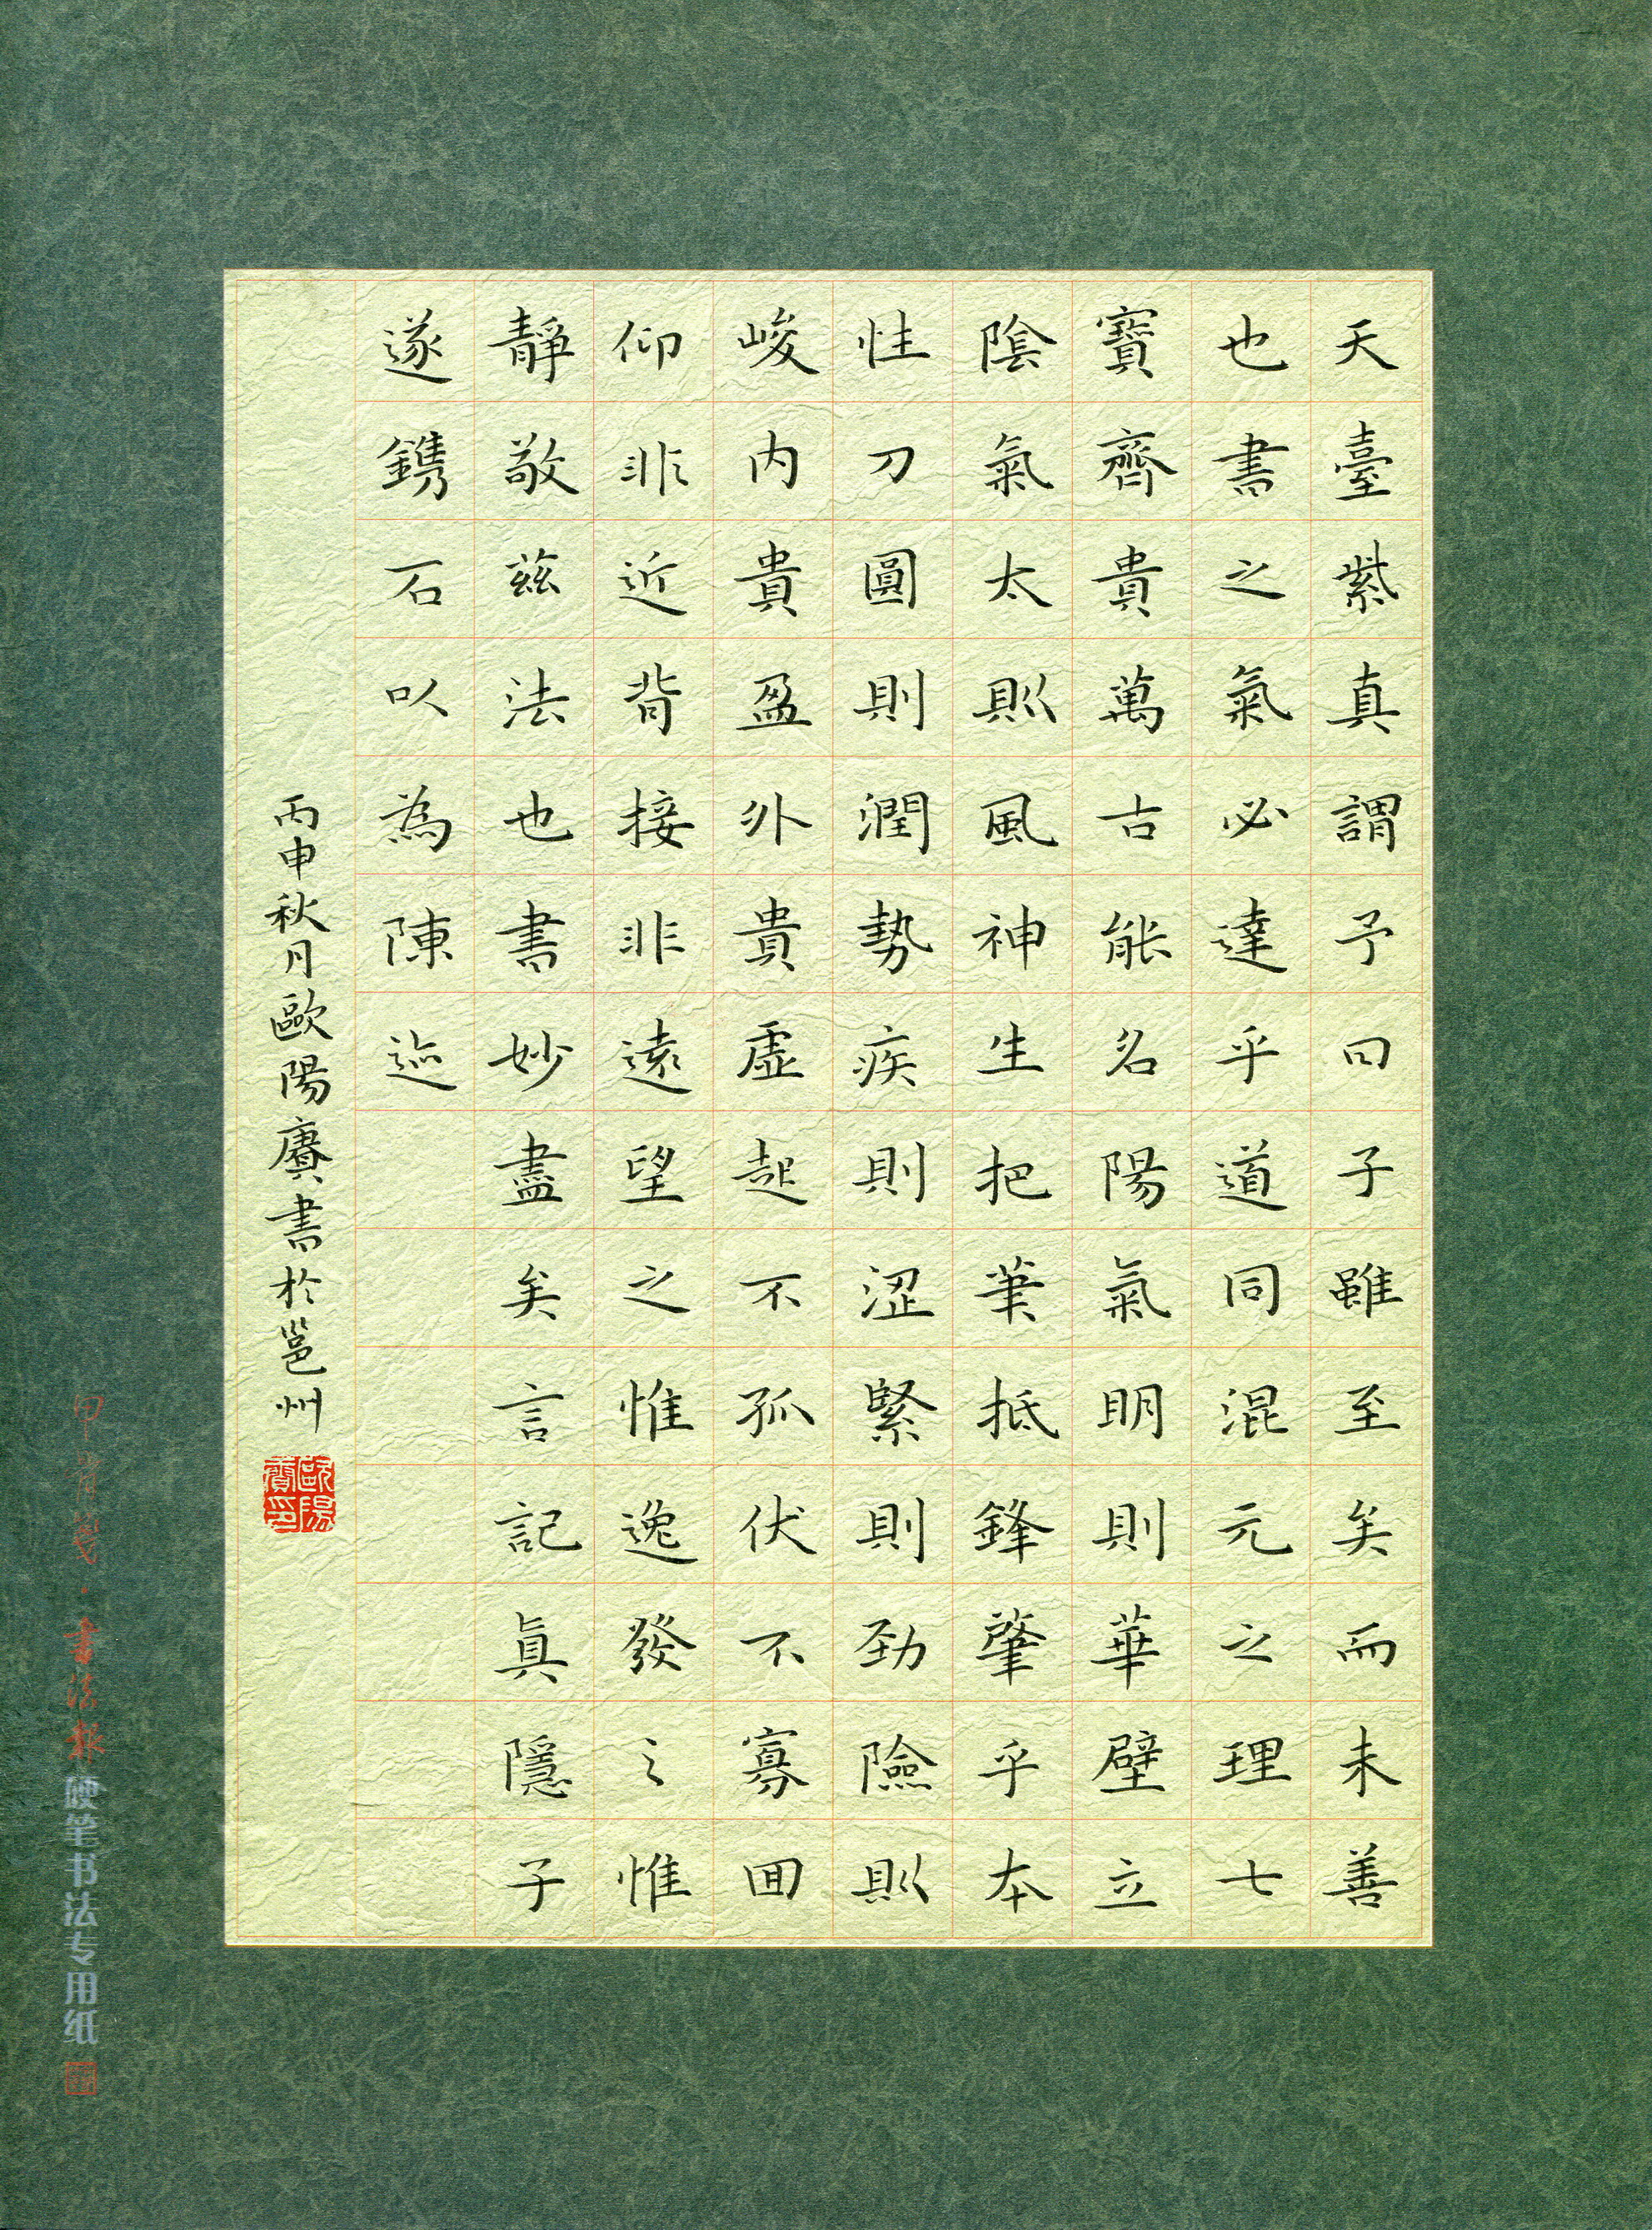 天臺紫真謂予曰子雖至矣而未善
也書之氣必達乎道同混元之理七
寶齊貴萬古能名陽氣明則華壁立
陰氣太則風神生把筆抵鋒肇乎本
性刀圓則潤勢疾則澀緊則勁險則
峻内貴盈外貴虛起不孤伏不寡回
仰非近背接非遠望之惟逸發之惟
靜敬茲法也書妙盡矣言記真隱子
遂鐫石以為陳迹
丙申秋月歐陽賡書於邕州
歐陽賡印
甲骨箋·書法報硬笔书法专用纸